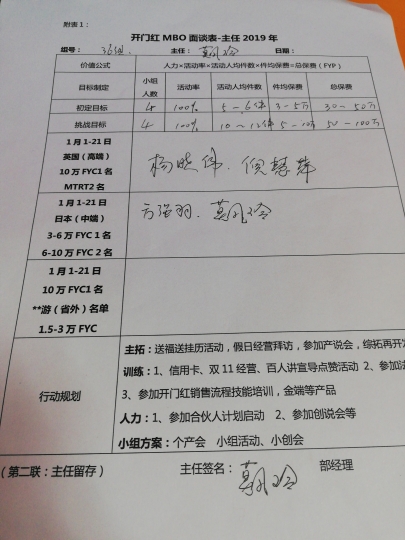 附表1：
开门红 MBO 面谈表-主任 2019 年
组号： 主任： 日期：
价值公式 人力×活动率×活动人均件数×件均保费=总保费（FYP）
目标制定 小组人数 活动率 活动人均件数 件均保费 总保费
初定目标 4 100% 5-6件 3-5万 30-50万
挑战目标 4 100% 10-12件 5-10万 50-100万
1 月 1-21 日
英国（高端）
10 万 FYC1 名
MTRT2 名
杨晓伟、倪慧
1 月 1-21 日
日本（中端）
3-6 万 FYC 1 名
6-10 万 FYC 2 名
方强羽、
1 月 1-21 日
10 万 FYC1 名
**游（省外）名单
1.5-3 万 FYC
行动规划
主拓：送福送挂历活动，假日经营拜访，参加产说会，综拓再开
训练：1、信用卡、双 11 经营、百人讲宣导点赞活动 2、参加
3、参加开门红销售流程技能培训，金端等产品
人力：1、参加合伙人计划启动 2、参加创说会等
小组方案：个产会 小组活动、小创会
（第二联：主任留存） 主任签名： 部经理